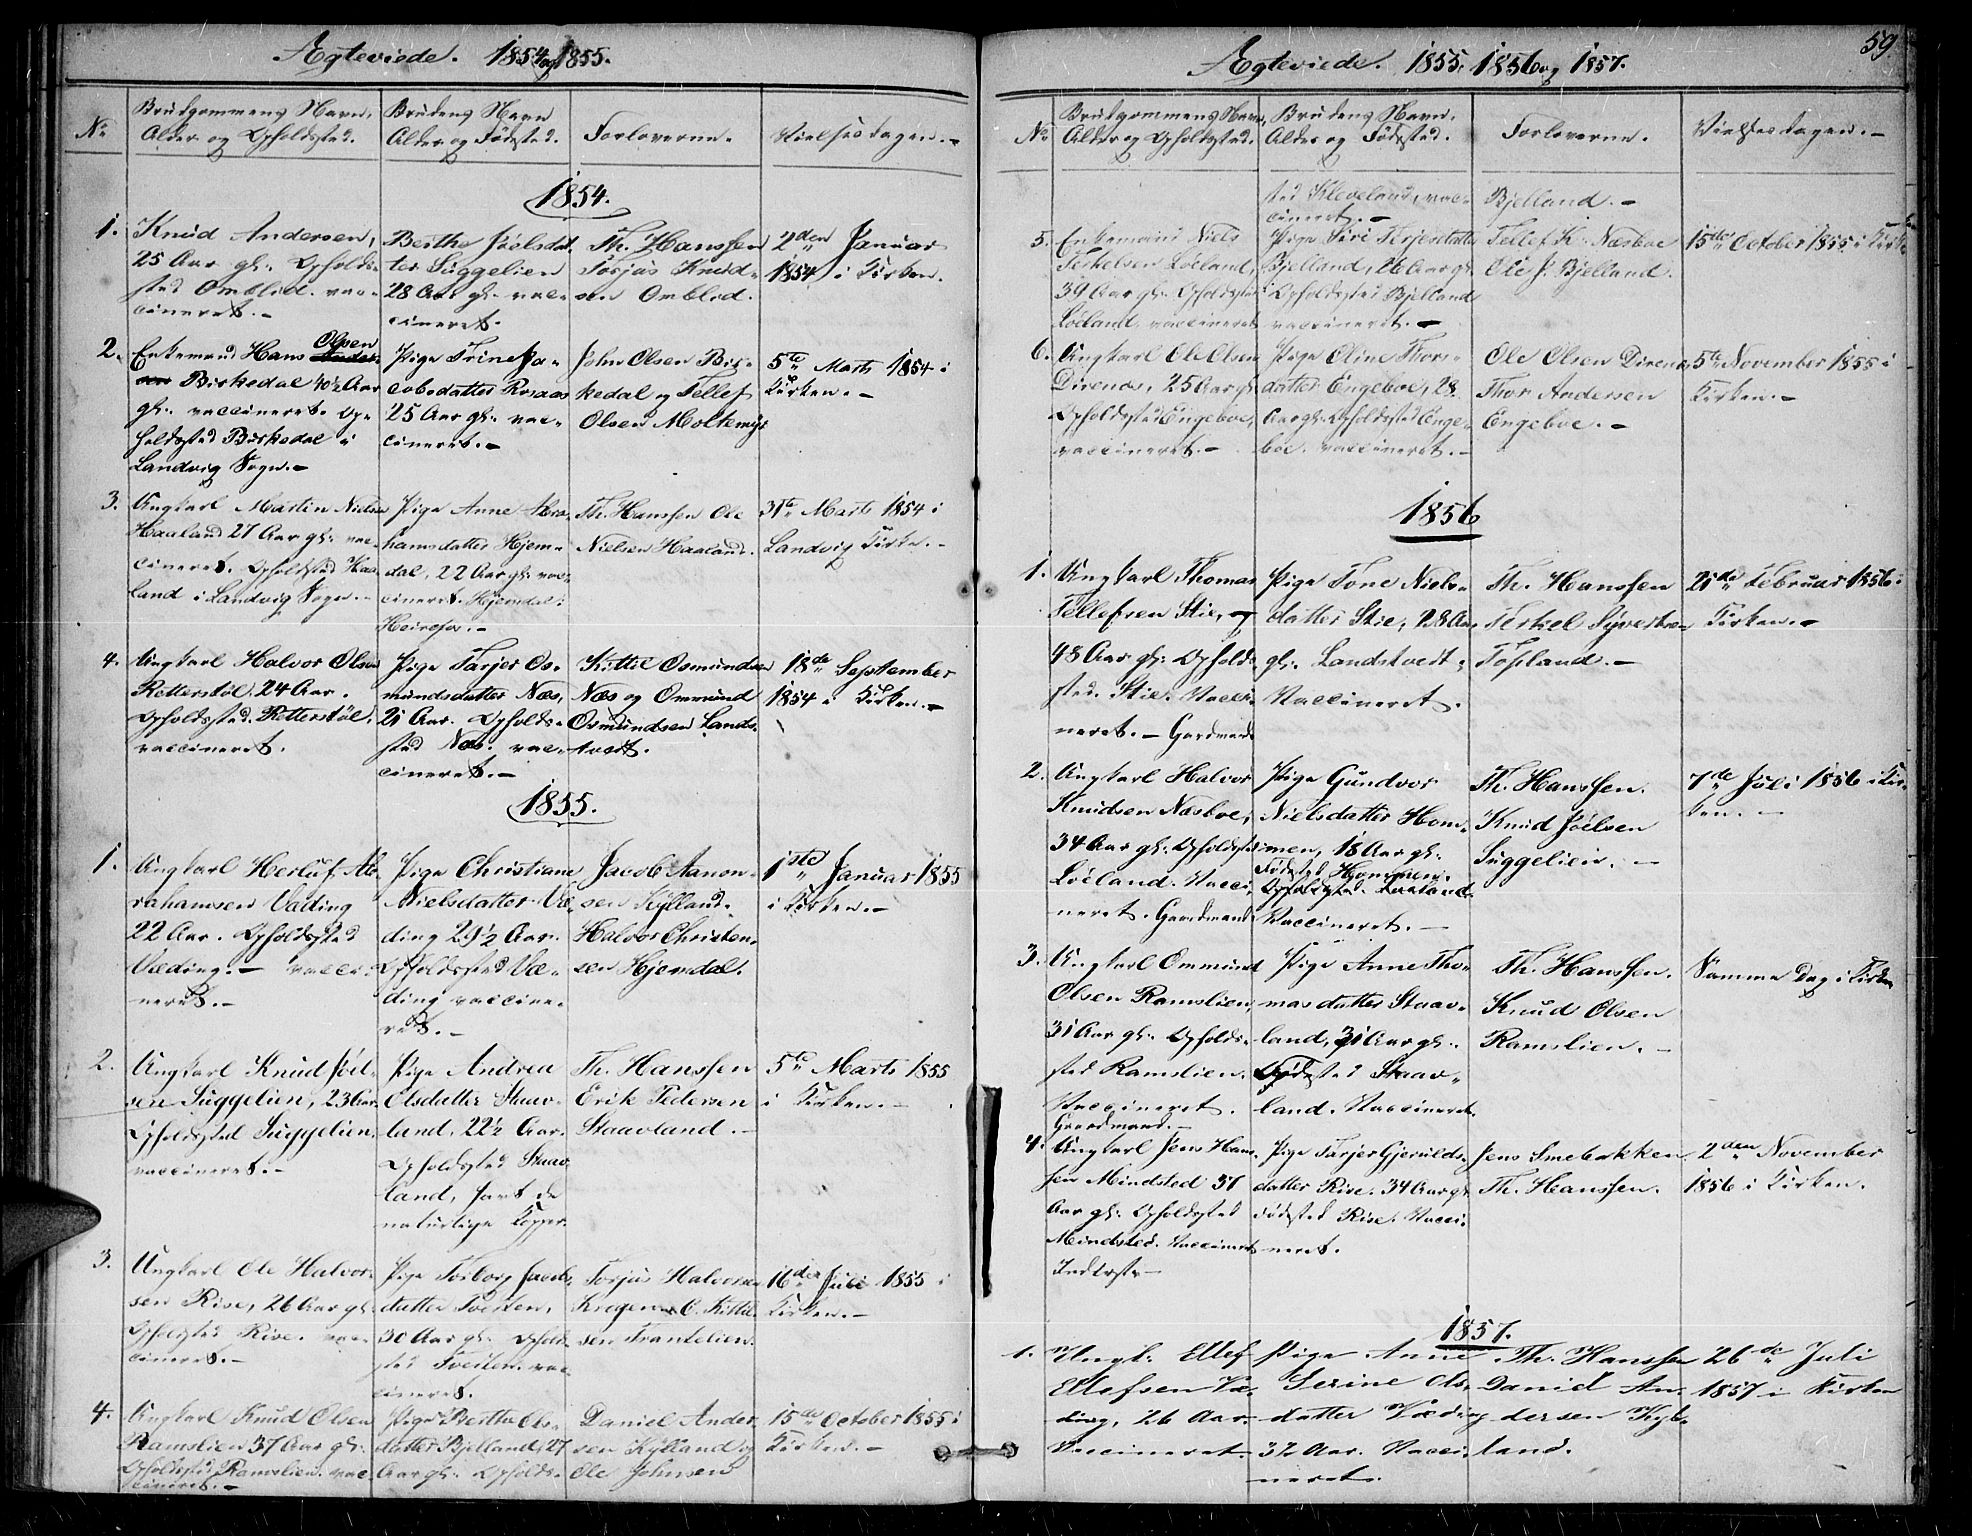 Ægteviede. 1854 og 1855.
No
Brudgommens Navn,
Alder og Opholdssted.
Brudens Navn
Alder og Fødested.
Forloverne.
Vielsesdagen.-
1854.
1.
Knud Andersen,
25 Aar gl. Opholds-
sted Omblid. vac-
cineret.-
Berthe Joelsdat-
ter Suggelien
28 Aar gl. vac-
cineret.
Th. Hanssen
Torjus Knud-
sen Omblid.
2den Januar
1854 i Kirken.
2.
Enkemand Hans Olsen
Birkedal 40½ Aar
gl. vaccineret. Op-
holdssted Birkedal i
Landvig Sogn.-
Pige Trine Ja-
cobsdatter Rosaas
25 Aar gl. vac-
cineret.-
John Olsen Bir-
kedal og Tellef
Olsen Moltemyr
5te Marts 1854 i
Kirken.-
3.
Ungkarl Martin Nielsen
Haaland 27 Aar gl. vac-
cineret. Opholdssted Haa-
land i Landvig Sogn.-
Pige Anne Abra-
hamsdatter Hjem-
dal, 22 Aar gl. vac-
cineret. Hjemdal,
Th. Hanssen Ole
Nielsen Haaland.
31te Marts 1854 i
Landvig Kirke.-
4.
Ungkarl Halvor Olsen
Retterstøl. 24 Aar.
Opholdssted. Retterstøl.
vaccineret.
Pige Tarjer Os-
mundsdatter Næs,
21 Aar. Opholds-
sted Næs. vac-
cineret.-
Kittil Osmundsen
Næs og Ommund
Osmundsen Lands-
tvedt.
18de September
1854 i Kirken.-
1855.
1.
Ungkarl Herluf Ab-
rahamsen Væding
22 Aar. Opholdssted
Væding.- vacci-
neret.-
Pige Christiane
Nielsdatter Væ-
ding 29½ Aar.
Opholdssted Væ-
ding vaccine-
ret.-
Jacob Aanon-
sen Kylland.
Halvor Christen-
sen Hjemdal.
1ste Januar 1855
i Kirken.-
2.
Ungkarl Knud Joel-
sen Suggelien, 23 Aar.
Opholdssted Suggelien.
vaccineret.-
Pige Andrea
Olsdatter Staav-
land, 22½ Aar.
Opholdssted Staav-
land, havt de
naturlige Kopper.
Th. Hanssen
Erik Pedersen
Staavland.-
5te Marts 1855
i Kirken.-
3.
Ungkarl Ole Halvor-
sen Rise, 26 Aar gl.
Opholdssted Rise. vac-
cineret.-
Pige Torborg Jacobs-
datter Tveiten,
30 Aar gl. Opholds-
sted Tveiten. vac-
cineret.
Torjus Halvorsen
Kragen O. Kittil-
sen Trantelien.
16den Juli 1855 i
Kirken.-
4.
Ungkarl Knud Olsen
Ramslien 37 Aar gl.
Opholdssted Ramslien. vac-
cineret.-
Pige Berthe Ols-
datter Bjelland, 27
Aar gl. Opholds-
Daniel Ander-
sen Kylland og
Ole Johnsen
15de October 1855 i
Kirken.-
59.
Ægteviede. 1855, 1856 og 1857.
No
Brudgommens Navn,
Alder og Opholdssted.
Brudens Navn.
Alder og Fødested.
Forloverne.
Vielsesdagen.-
sted Kleveland, vac-
cineret.-
Bjelland.-
5.
Enkemand Niels
Terkelsen Løeland,
39 Aar gl. Opholdssted
Løeland, vaccineret
Pige Siri Terjesdatter
Bjelland, 26 Aar gl.
Opholdssted Bjelland
vaccineret.-
Tellef K. Næsboe
Ole J. Bjelland.
15de October 1855 i Kirken
6.
Ungkarl Ole Olsen
Direnæs, 25 Aar gl.
Opholdssted Engeboe,
vaccineret.-
Pige Oline Thors-
datter Engeboe, 28
Aar gl. Opholdssted Enge-
boe. vaccineret.-
Ole Olsen Direnæs
Thor Andersen
Engeboe.-
5te November 1855 i
Kirken.-
1856
1.
Ungkarl Thomas
Tellefsen Stie,
48 Aar gl. Opholds-
sted. Stie. Vacci-
neret.- Gaardmand
Pige Tone Niels-
datter Stie, 28 Aar
gl. Landstvedt.
Vaccineret.
Th. Hanssen
Terkel Syvertsen
Topland.-
21de Februar 1856 i
Kirken.-
2.
Ungkarl Halvor
Knudsen Næsboe,
34 Aar gl. Opholdssted
Løeland. Vacci-
neret. Gaardmand
Pige Gundvor
Nielsdatter Hom-
men, 18 Aar gl.
Fødested Hommen.
Opholdssted
Vaccineret.-
Th. Hanssen.
Knud Joelsen
Suggelien.-
7de Juli 1856 i Kir-
ken.-
3.
Ungkarl Ommund
Olsen Ramslien,
31 Aar gl. Opholds-
sted Ramslien.
Vaccineret.
Gaardmand.-
Pige Anne Tho-
masdatter Staav-
land, 31 Aar gl.
Fødested Staav-
land. Vaccineret.
Th. Hanssen.
Knud Olsen
Ramslien.-
Samme Dag i Kirken
4.
Ungkarl Jens Han-
sen Mindsted 37
Aar gl. Opholdssted
Mindsted. Vaccineret
Inderst.-
Pige Tarjer Gjerulds-
datter Rise. 34 Aar gl.
Fødested Rise. Vacci-
neret.
Jens Smebakken
Th. Hanssen.
2den November
1856 i Kirken.
1857.
1.
Ungk. Ellef
Ellefsen Væ-
ding, 26 Aar.
Vaccineret.
Pige Anne
Serine Ols-
datter Væding
32 Aar. Vacci-
neret.
Th. Hanssen
Daniel An-
dersen Kyl-
land.
26de Juli
1857 i Kirken